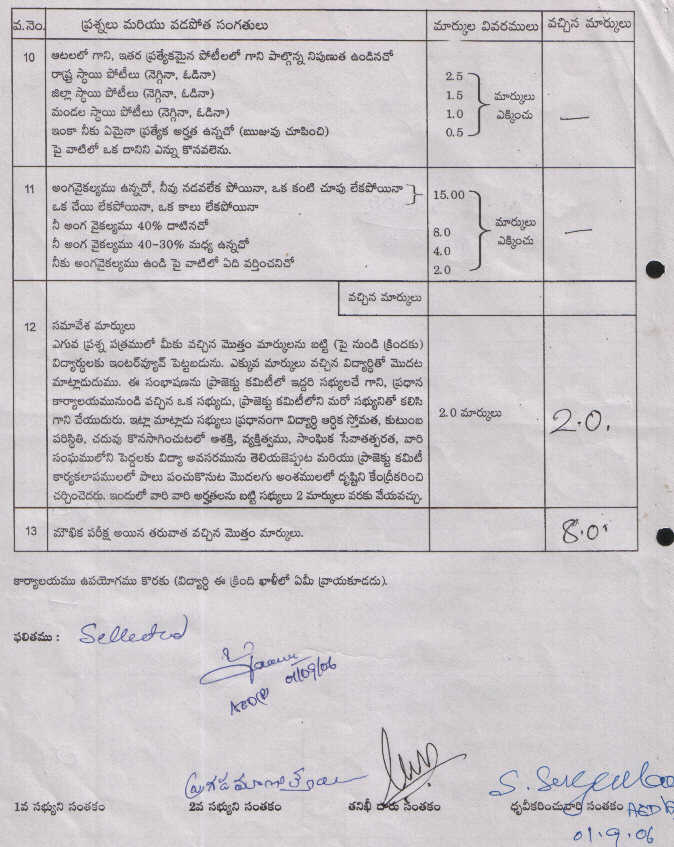 వ.నెం. ప్రశ్నలు మరియు వడపోత సంగతులు మార్కుల వివరములు వచ్చిన మార్కులు
10 ఆటలలో గాని, ఇతర ప్రత్యేకమైన పోటీలలో గాని పాల్గొన్న నిపుణుత ఉండినచో
రాష్ట్ర స్థాయి పోటీలు (నెగ్గినా, ఓడినా) 2.5
జిల్లా స్థాయి పోటీలు (నెగ్గినా, ఓడినా) 1.5 మార్కులు
మండల స్థాయి పోటీలు (నెగ్గినా, ఓడినా) 1.0 ఎక్కించు —
ఇంకా నీకు ఏమైనా ప్రత్యేక అర్హత ఉన్నచో (ఋజువు చూపించి) 0.5
పై వాటిలో ఒక దానిని ఎన్ను కొనవలెను.
11 అంగవైకల్యము ఉన్నచో, నీవు నడవలేక పోయినా, ఒక కంటి చూపు లేకపోయినా 15.00
ఒక చేయి లేకపోయినా, ఒక కాలు లేకపోయినా
నీ అంగ వైకల్యము 40% దాటినచో 8.0 మార్కులు
నీ అంగ వైకల్యము 40-30% మధ్య ఉన్నచో 4.0 ఎక్కించు —
నీకు అంగవైకల్యము ఉండి పై వాటిలో ఏది వర్తించనిచో 2.0
వచ్చిన మార్కులు
12 సమావేశ మార్కులు
ఎగువ ప్రశ్న పత్రములో మీకు వచ్చిన మొత్తం మార్కులను బట్టి (పై నుండి క్రిందకు)
విద్యార్థులకు ఇంటర్‌వ్యూవ్ పెట్టబడును. ఎక్కువ మార్కులు వచ్చిన విద్యార్థితో మొదట
మాట్లాడుదుము. ఈ సంభాషణను ప్రాజెక్టు కమిటీలో ఇద్దరి సభ్యులచే గాని, ప్రధాన
కార్యాలయమునుండి వచ్చిన ఒక సభ్యుడు, ప్రాజెక్టు కమిటీలోని మరో సభ్యునితో కలిసి
గాని చేయుదురు. ఇట్లా మాట్లాడు సభ్యులు ప్రధానంగా విద్యార్థి ఆర్థిక స్తోమత, కుటుంబ 2.0 మార్కులు 2.0.
పరిస్థితి, చదువు కొనసాగించుటలో ఆశక్తి, వ్యక్తిత్వము, సాంఘిక సేవాతత్పరత, వారి
సంఘములోని పెద్దలకు విద్యా అవసరమును తెలియజెప్పుట మరియు ప్రాజెక్టు కమిటీ
కార్యకలాపములలో పాలు పంచుకొనుట మొదలగు అంశములలో దృష్టిని కేంద్రీకరించి
చర్చించెదరు. ఇందులో వారి వారి అర్హతలను బట్టి సభ్యులు 2 మార్కులు వరకు వేయవచ్చు.
13 మౌఖిక పరీక్ష అయిన తరువాత వచ్చిన మొత్తం మార్కులు. 8.0
కార్యాలయము ఉపయోగము కొరకు (విద్యార్థి ఈ క్రింది ఖాళీలో ఏమీ వ్రాయకూడదు).
ఫలితము : Sellected
01/09/06
1వ సభ్యుని సంతకం 2వ సభ్యుని సంతకం తనిఖీ దారు సంతకం ధృవీకరించువారి సంతకం
01.9.06